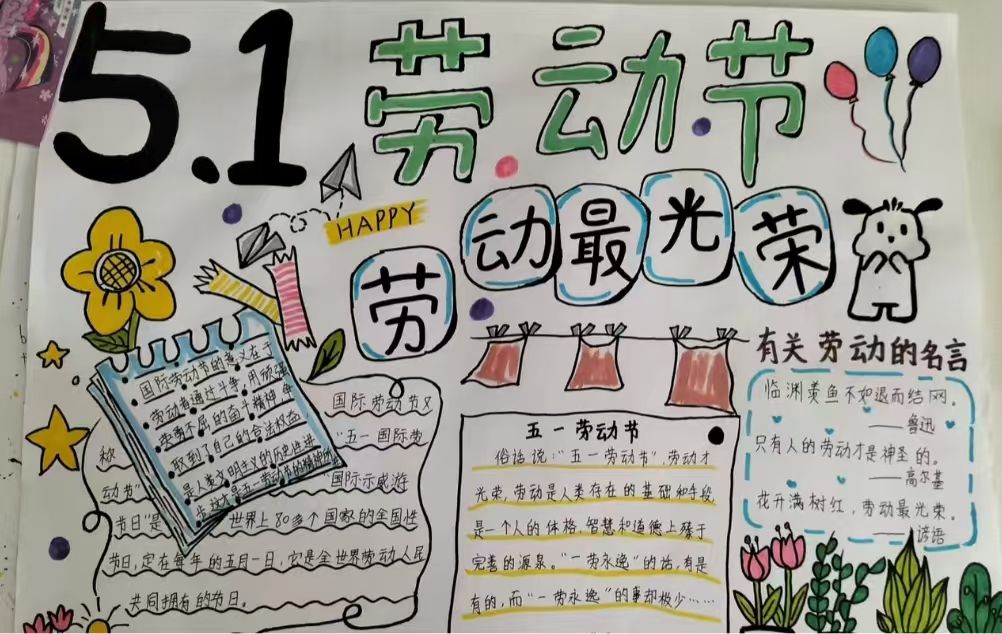 5.1 劳动节
HAPPY
劳动最光荣
国际劳动节的意义在于
劳动者通过斗争,用顽强
不屈的奋斗精神,争
取到了自己的合法权益
是人类文明主义的历史性进
步,这才是五一劳动节的精神
国际劳动节又
称 “五一国际劳
动节” “国际示威游
节日”是 世界上80多个国家的全国性
节日,定在每年的五月一日,它是全世界劳动人民
共同拥有的节日。
五一劳动节
俗话说:“五一劳动节”,劳动才
光荣,劳动是人类存在的基础和手段,
是一个人的体格,智慧和道德上臻于
完善的源泉。“一劳永逸”的话,有是
有的,而“一劳永逸”的事却极少……
有关劳动的名言
临渊羡鱼不如退而结网。
——鲁迅
只有人的劳动才是神圣的。
——高尔基
花开满树红,劳动最光荣。
——谚语